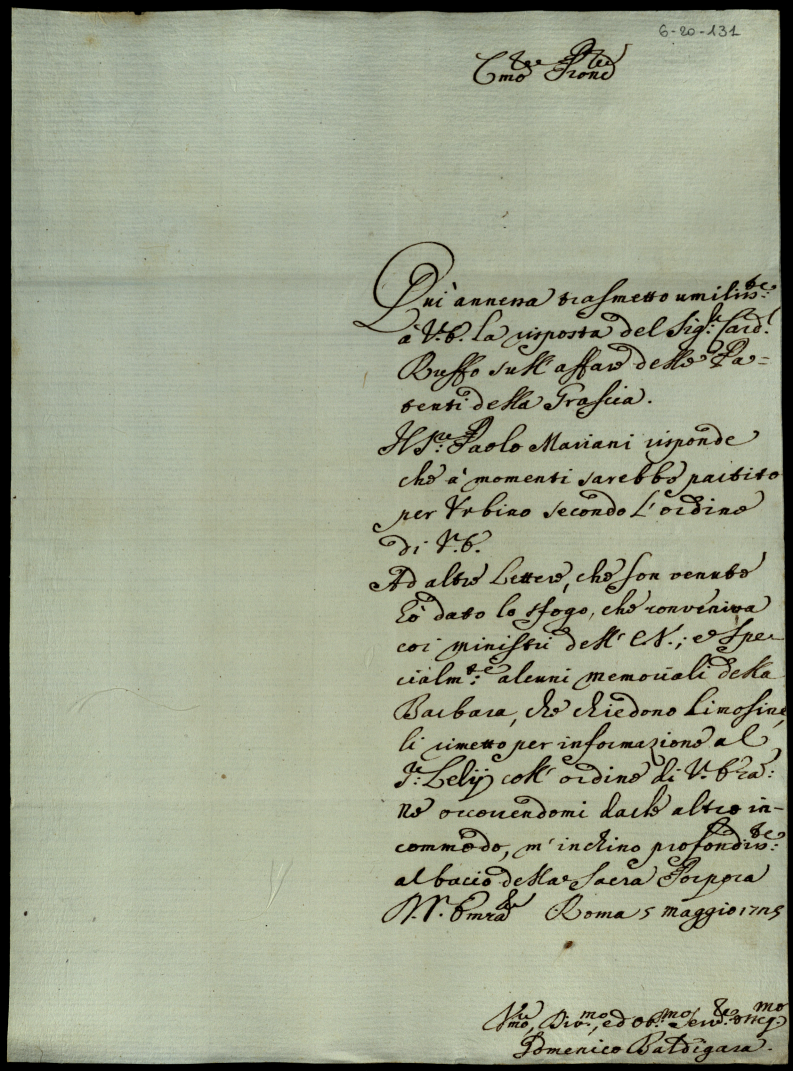 6-20-131
Emo e Rmo Prone
Qui annessa trasmetto umiliss.te
à V.E. la risposta del Sig.r Card.l
Ruffo sull' affare delle Pa=
tenti della Grascia.
Il S.re Paolo Mariani risponde
che à momenti sarebbe partito
per Urbino secondo l' ordine
di V.E.
Ad altre Lettere, che son venute
hò dato lo sfogo, che conveniva
coi ministri dell' E.V.; e Spe-
cialm.te alcuni memoriali della
Barbara, che chiedono Limosine,
li rimetto per informazione al
S.r Lelij coll' ordine di V. Em̃za:
Ne occorrendomi darle altro in-
commodo, m' inchino profondiss.te
al bacio della Sacra Porpora
D.V. Emza Roma 5 maggio 1725
Vmo, Div.mo, ed Ob.mo Serv.re
Domenico Baldigara.